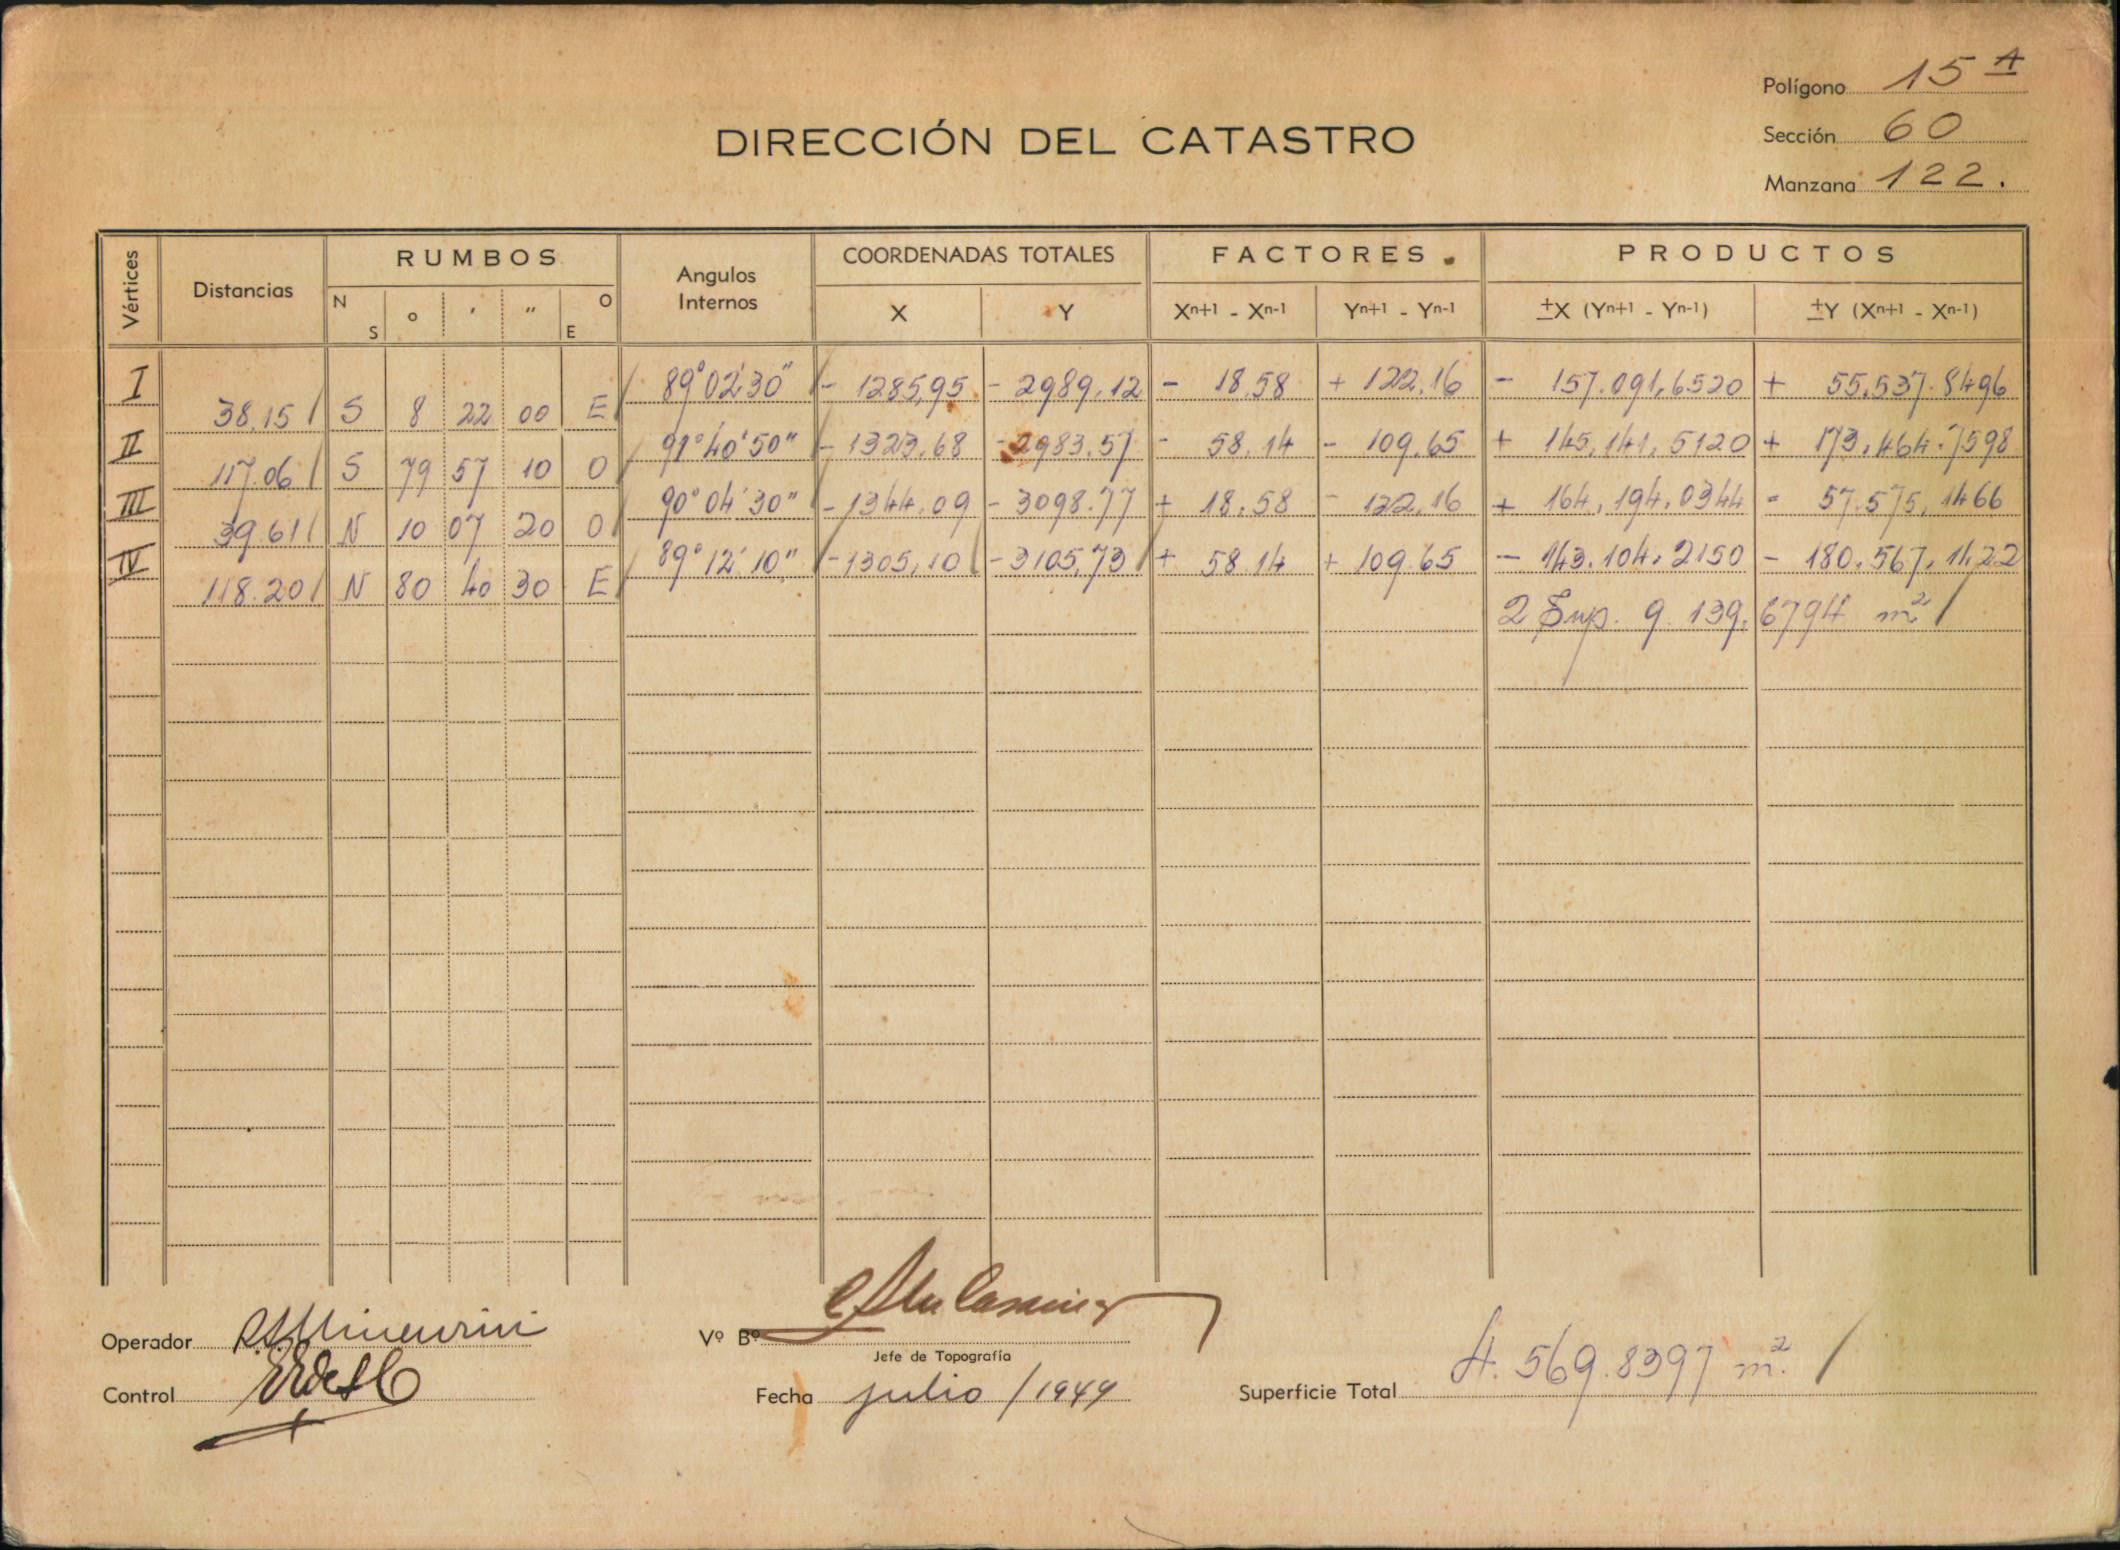 Polígono 15 A
DIRECCIÓN DEL CATASTRO
Sección 60
Manzana 122.
Vértices Distancias RUMBOS Angulos Internos COORDENADAS TOTALES FACTORES PRODUCTOS
N S o ' " O E X Y Xn+1 - Xn-1 Yn+1 - Yn-1 ±X (Yn+1 - Yn-1) ±Y (Xn+1 - Xn-1)
I 89° 02' 30" - 1285,95 - 2989,12 - 18.58 + 122.16 - 157.091,6520 + 55.537.8496
38,15 S 8 22 00 E
II 91° 40' 50" - 1323,68 - 2983.57 - 58.14 - 109.65 + 145,141,5120 + 173.464.7598
117.06 S 79 57 10 O
III 90° 04' 30" - 1344.09 - 3098.77 + 18.58 - 122.16 + 164,194.0344 - 57.575,1466
39.61 N 10 07 20 O
IV 89° 12' 10" - 1305,10 - 3105,73 + 58.14 + 109.65 - 143.104.2150 - 180.567,1422
118.20 N 80 40 30 E
2 Sup. 9.139.6794 m²
Operador
Vº Bº
Jefe de Topografía
Control
Fecha julio / 1949
Superficie Total 4.569.8397 m².